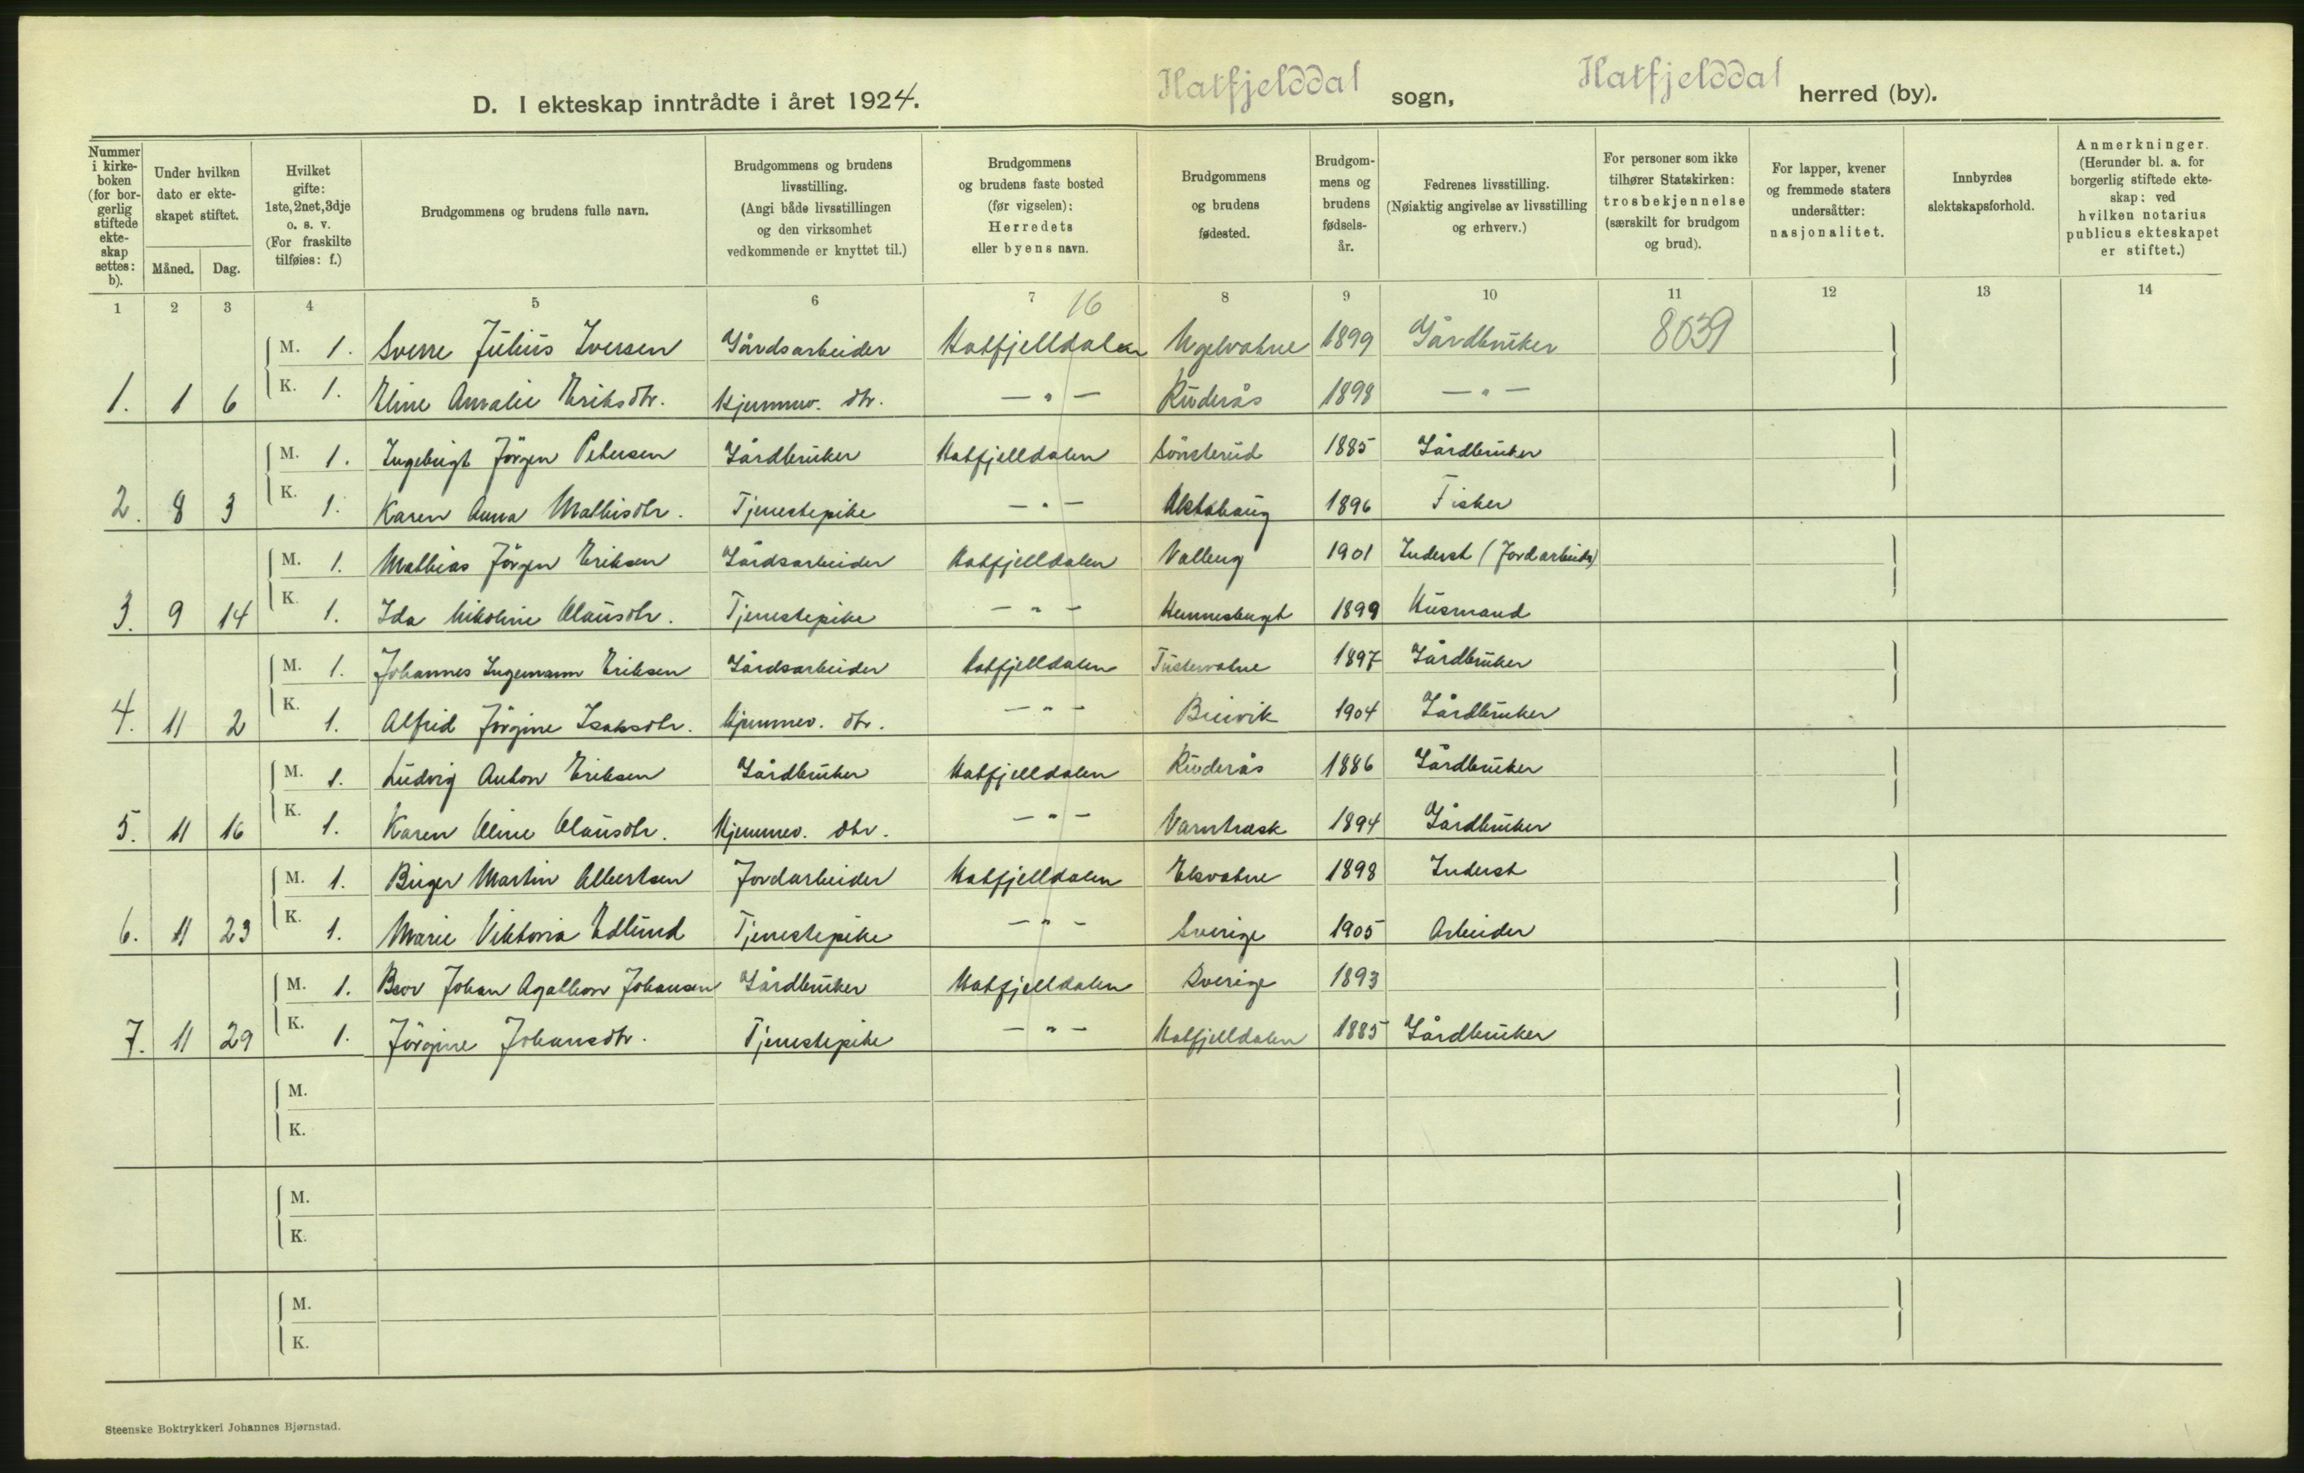 D. I ekteskap inntrådte i året 1924. Hatfjelddal sogn, Hatfjelddal herred (by).
Nummer i kirkeboken (for borgerlig stiftede ekteskap settes: b).
Under hvilken dato er ekteskapet stiftet.
Måned. Dag.
Hvilket gifte: 1ste, 2net, 3dje o. s. v. (For fraskilte tilføies: f.)
Brudgommens og brudens fulle navn.
Brudgommens og brudens livsstilling. (Angi både livsstillingen og den virksomhet vedkommende er knyttet til.)
Brudgommens og brudens faste bosted (før vigselen): Herredets eller byens navn.
Brudgommens og brudens fødested.
Brudgommens og brudens fødselsår.
Fedrenes livsstilling. (Nøiaktig angivelse av livsstilling og erhverv.)
For personer som ikke tilhører Statskirken: trosbekjennelse (særskilt for brudgom og brud).
For lapper, kvener og fremmede staters undersåtter: nasjonalitet.
Innbyrdes slektskapsforhold.
Anmerkninger. (Herunder bl. a. for borgerlig stiftede ekteskap: ved hvilken notarius publicus ekteskapet er stiftet.)
1 2 3 4 5 6 7 8 9 10 11 12 13 14
16
M. 1. Sverre Julius Iversen Gårdsarbeider Hatfjelldalen Ugelvatne 1899 Gårdbruker 8039
1. 1 6 K. 1. Eline Amalie Eriksdtr. Hjemmev. dtr. — " — 1898 — " —
M. 1. Ingebrigt Jörgen Petersen Gårdbruker Hatfjelldalen Sönsterud 1885 Gårdbruker
2. 8 3 K. 1. Karen Anna Mathisdtr. Tjenestepike — " — Alstahaug 1896 Fisker
M. 1. Mathias Jörgen Eriksen Gårdsarbeider Hatfjelldalen 1901 Inderst (Jordarbeider)
3. 9 14 K. 1. Ida Nikoline Olausdtr. Tjenestepike — " — 1899 Husmand
M. 1. Johannes Ingemann Eriksen Gårdsarbeider Hatfjelldalen Tustervatne 1897 Gårdbruker
4. 11 2 K. 1. Alfrid Jörgine Isaksdtr. Hjemmev. dtr. — " — 1904 Gårdbruker
M. 1. Ludvig Anton Eriksen Gårdbruker Hatfjelldalen 1886 Gårdbruker
5. 11 16 K. 1. Karen Oline Olausdtr. Hjemmev. dtr. — " — Varntræsk 1894 Gårdbruker
M. 1. Birger Martin Albertsen Jordarbeider Hatfjelldalen Elsvatne 1898 Inderst
6. 11 23 K. 1. Marie Viktoria Edlund Tjenestepike — " — Sverige 1905 Arbeider
M. 1. Bror Johan Agathon Johansen Gårdbruker Hatfjelldalen Sverige 1893
7. 11 29 K. 1. Jörgine Johansdtr. Tjenestepike — " — Hatfjelldalen 1885 Gårdbruker
M.
K.
M.
K.
M.
K.
Steenske Boktrykkeri Johannes Bjørnstad.